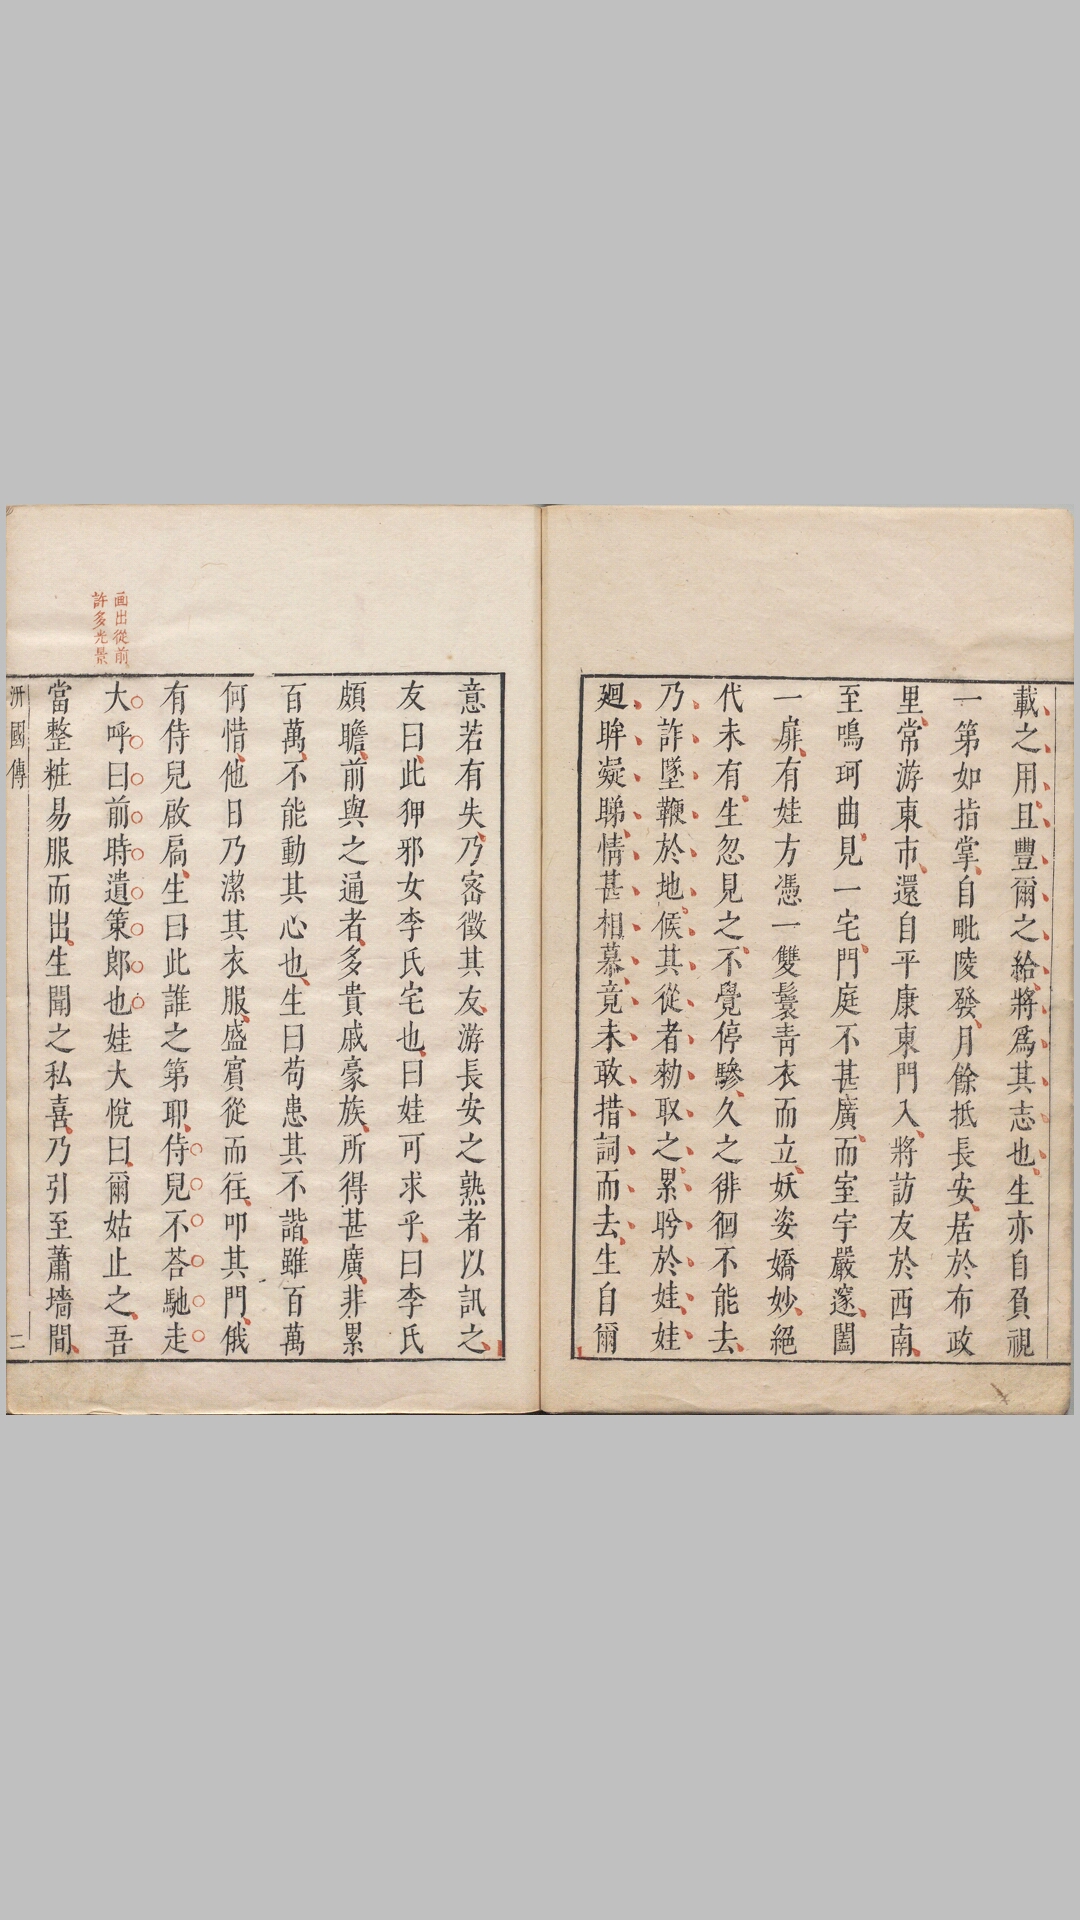 載之用且豐爾之給將爲其志也生亦自負視
一第如指掌自毗陵發月餘抵長安居於布政
里常游東市還自平康東門入將訪友於西南
至鳴珂曲見一宅門庭不甚廣而室宇嚴邃闔
一扉有娃方憑一雙鬟靑衣而立妖姿嬌妙絕
代未有生忽見之不覺停驂久之徘徊不能去
乃詐墜鞭於地候其從者勑取之累眄於娃娃
廻眸凝睇情甚相慕竟未敢措詞而去生自爾
意若有失乃密徵其友游長安之熟者以訊之
友曰此狎邪女李氏宅也曰娃可求乎曰李氏
頗贍前與之通者多貴戚豪族所得甚廣非累
百萬不能動其心也生曰苟患其不諧雖百萬
何惜他日乃潔其衣服盛賓從而往叩其門俄
有侍兒啟扃生曰此誰之第耶侍兒不荅馳走
画出從前
許多光景
大呼曰前時遺策郎也娃大悅曰爾姑止之吾
當整粧易服而出生聞之私喜乃引至蕭墻間
汧國傳
二